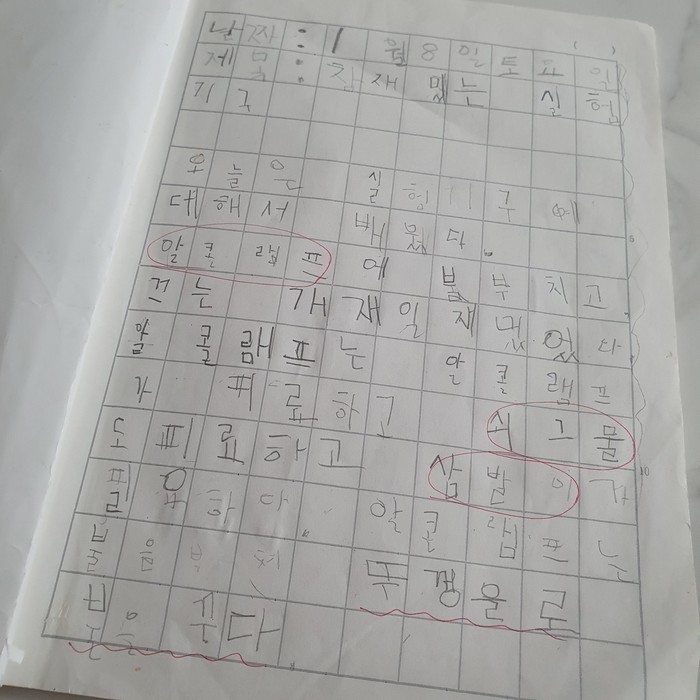 날짜: 1월 8일 토요일
제목: 참 재밌는 실험
기구
오늘은 실험기구에
대해서 배웠다.
알콜램프에 불부치고
끄는 개 재일 재밌었다
알콜램프는 알콜램프
가 피료하고 쇠그물
도 피료하고 삼발이가
필요하다. 알콜램프는
불을 부처
뚜껑을로
불을 끄다